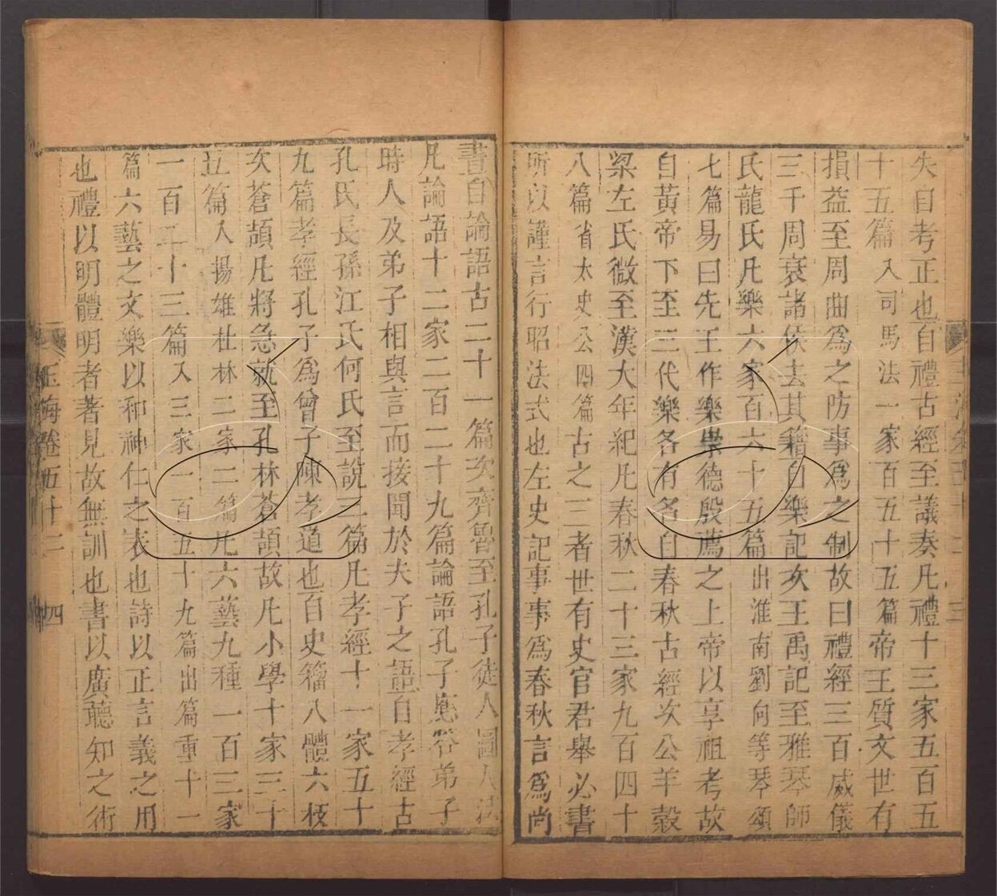 失自考正也自禮古經至議奏凡禮十三家五百五
十五篇入司馬法一家百五十五篇帝王質文世有
損益至周曲爲之防事爲之制故曰禮經三百威儀
三千周衰諸侯去其籍自樂記次王禹記至雅琴師
氏龍氏凡樂六家百六十五篇出淮南劉向等琴頌
七篇易曰先王作樂崇德殷薦之上帝以享祖考故
自黃帝下至三代樂各有名自春秋古經次公羊穀
梁左氏微至漢大年紀凡春秋二十三家九百四十
八篇省太史公四篇古之王者世有史官君舉必書
所以謹言行昭法式也左史記事事爲春秋言爲尚
書自論語古二十一篇次齊魯至孔子徒人圖法
凡論語十二家二百二十九篇論語孔子應答弟子
時人及弟子相與言而接聞於夫子之語自孝經古
孔氏長孫江氏何氏至說三篇凡孝經十一家五十
九篇孝經孔子爲曾子陳孝道也自史籀八體六技
次蒼頡凡將急就至杜林蒼頡故凡小學十家三十
五篇入揚雄杜林二家二篇凡六藝九種一百三家
一百二十三篇入三家一百五十九篇出篇重十一
篇六藝之文樂以和神仁之表也詩以正言義之用
也禮以明體明者著見故無訓也書以廣聽知之術
玉海卷五十二 四